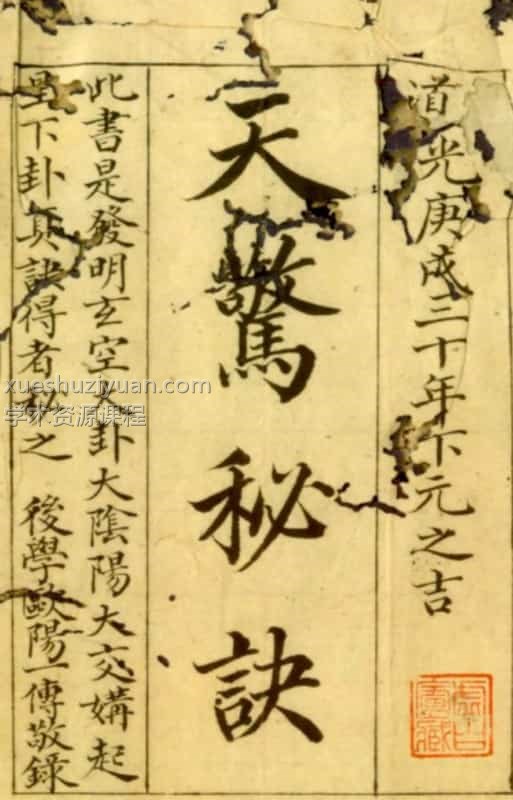 道光庚戌三十年下元之吉
天驚秘訣
此書是發明玄空大卦大陰陽大交媾起
星下卦真訣得者秘之 後學歐陽一傳敬錄
xueshuziyuan.com
学术资源课程